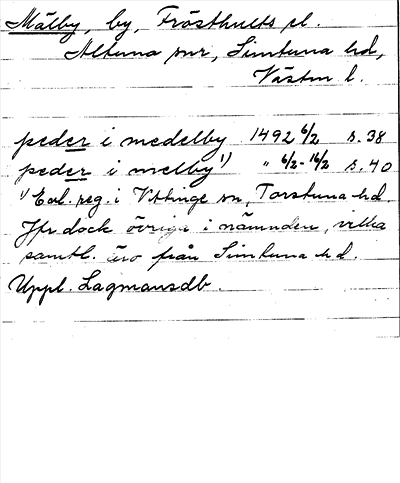 Mälby, by, Frösthults sl.
Altuna snr, Simtuna hd,
Västm l.
peder i medelby 1492 6/2 s. 38
peder i melby¹) " 6/2 - 16/2 s. 40
¹) Enl. reg. i Vittinge sn, Torstuna hd.
Jfr dock övriga i nämnden, vilka
samtl. äro från Simtuna hd.
Uppl. Lagmansdb.